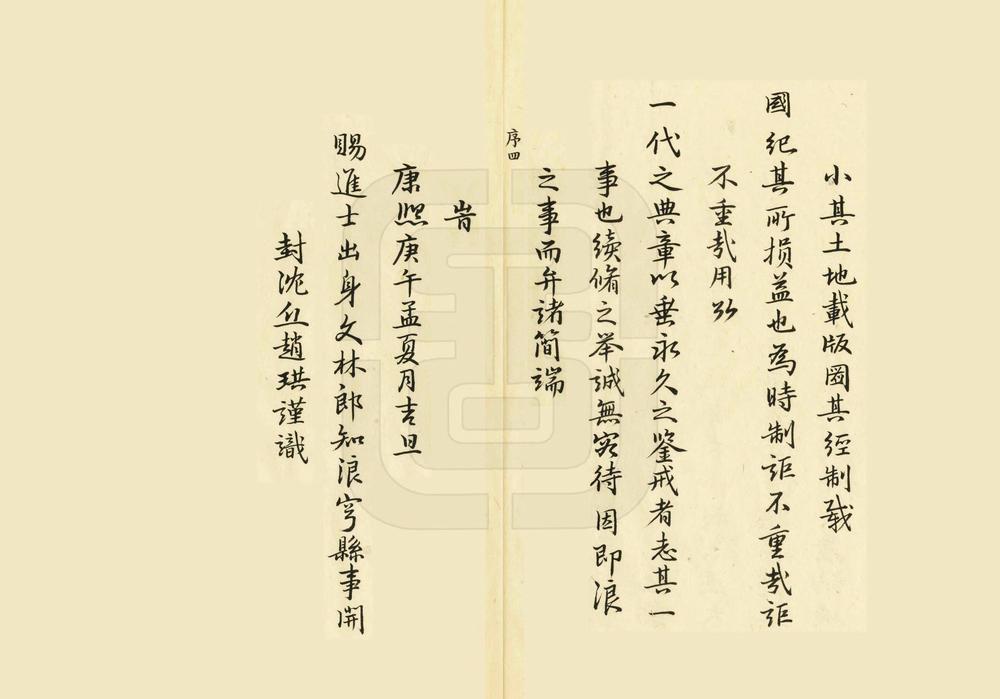 小其土地載版圖其經制載
國紀其所損益也為時制詎不重哉詎
不重哉用以
一代之典章以垂永久之鑒戒者志其一
事也續脩之举誠無容待因即浪
之事而弁諸简端
序四
旹
康熙庚午孟夏月吉旦
賜進士出身文林郎知浪穹縣事開
封沈丘趙珙謹識